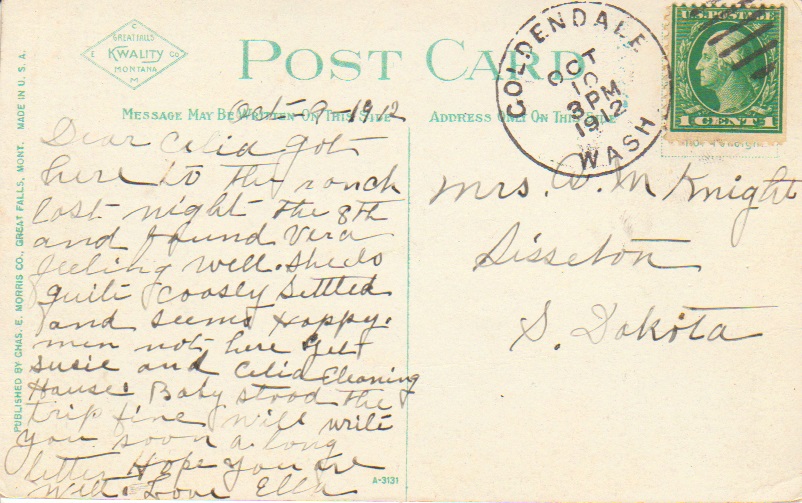 C
GREAT FALLS
E KWALITY CO
MONTANA
M
POST CARD
MESSAGE MAY BE WRITTEN ON THIS SIDE
ADDRESS ONLY ON THIS SIDE
GOLDENDALE
OCT
10
3 PM
1912
WASH
U.S. POSTAGE
1 CENT 1
Oct-9-1912
Dear Celia got
here to the ranch
last night the 8th
and found Vera
feeling well. She is
quite coosly settled
and seems Happy.
men not here yet
Susie and Celia Cleaning
House. Baby stood the
trip fine will write
you soon a long
letter Hope you are
well. Love Ella
Mrs. D. M Knight
Sisseton
S. Dakota
PUBLISHED BY CHAS. E. MORRIS CO., GREAT FALLS, MONT. MADE IN U. S. A.
A-3131